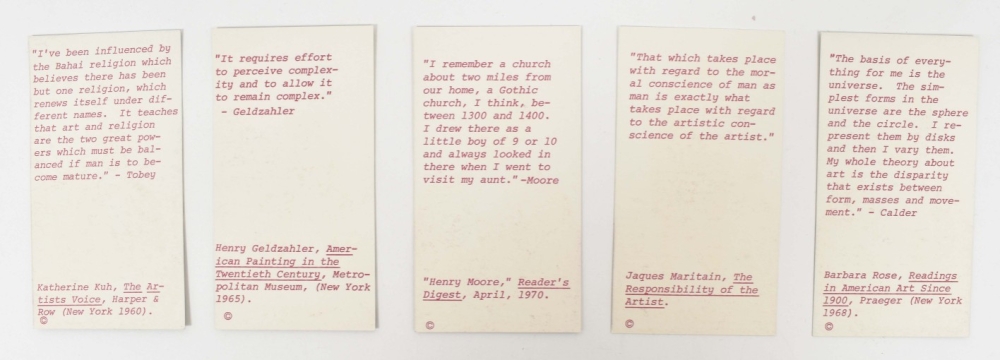 "I've been influenced by
the Bahai religion which
believes there has been
but one religion, which
renews itself under dif-
ferent names. It teaches
that art and religion
are the two great pow-
ers which must be bal-
anced if man is to be-
come mature." - Tobey
Katherine Kuh, The Ar-
tists Voice, Harper &
Row (New York 1960).
©
"It requires effort
to perceive complex-
ity and to allow it
to remain complex."
- Geldzahler
Henry Geldzahler, Amer-
ican Painting in the
Twentieth Century, Metro-
politan Museum, (New York
1965).
©
"I remember a church
about two miles from
our home, a Gothic
church, I think, be-
tween 1300 and 1400.
I drew there as a
little boy of 9 or 10
and always looked in
there when I went to
visit my aunt." -Moore
"Henry Moore," Reader's
Digest, April, 1970.
©
"That which takes place
with regard to the mor-
al conscience of man as
man is exactly what
takes place with regard
to the artistic con-
science of the artist."
Jaques Maritain, The
Responsibility of the
Artist.
©
"The basis of every-
thing for me is the
universe. The sim-
plest forms in the
universe are the sphere
and the circle. I re-
present them by disks
and then I vary them.
My whole theory about
art is the disparity
that exists between
form, masses and move-
ment." - Calder
Barbara Rose, Readings
in American Art Since
1900, Praeger (New York
1968).
©